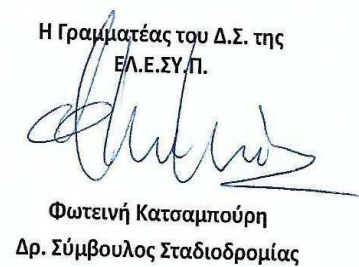 Η Γραμματέας του Δ.Σ. της
ΕΛ.Ε.ΣΥ.Π.
Φωτεινή Κατσαμπούρη
Δρ. Σύμβουλος Σταδιοδρομίας